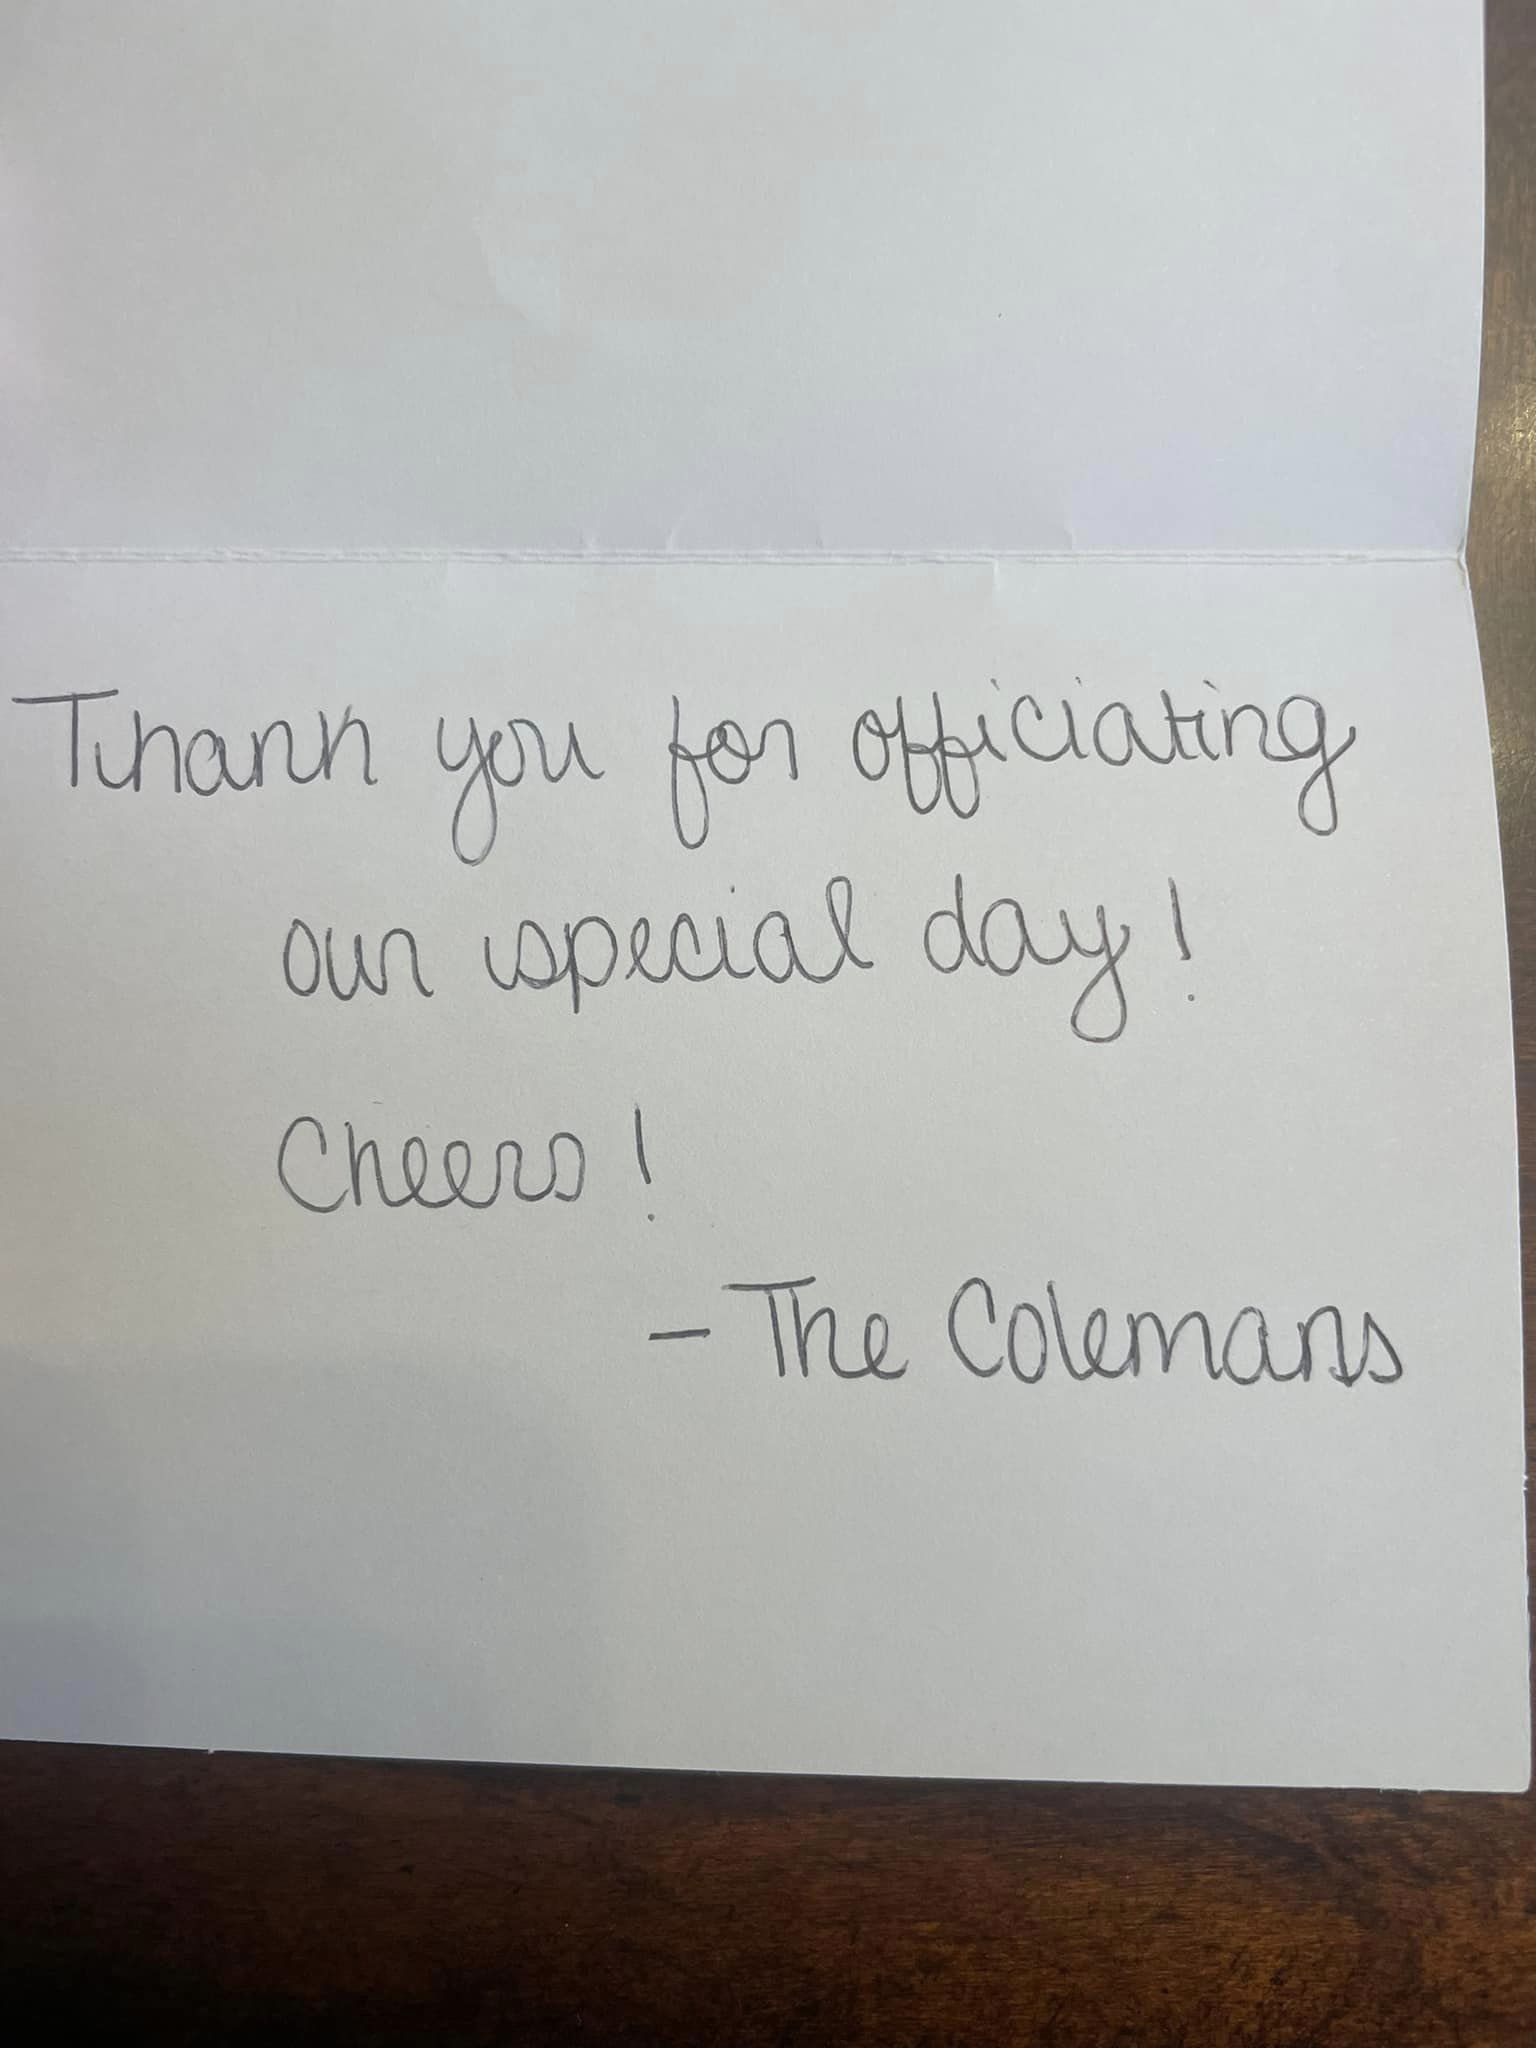 Thank you for officiating
our special day!
Cheers!
- The Colemans